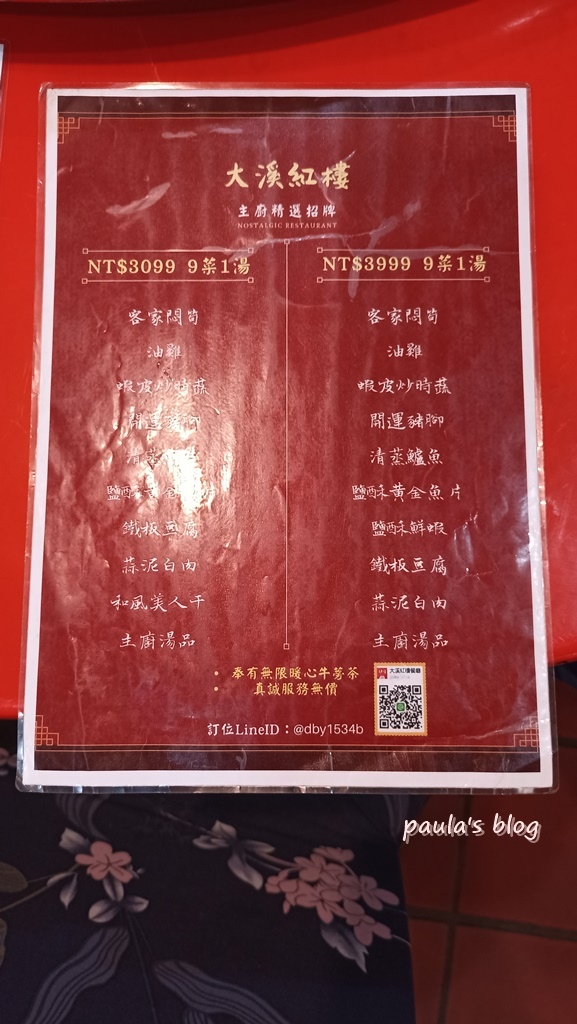 大溪紅樓
主廚精選招牌
NOSTALGIC RESTAURANT
NT$3099 9菜1湯
客家悶筍
油雞
蝦皮炒時蔬
開運豬腳
清蒸
鹽酥黃金 片
鐵板豆腐
蒜泥白肉
和風美人干
主廚湯品
NT$3999 9菜1湯
客家悶筍
油雞
蝦皮炒時蔬
開運豬腳
清蒸鱸魚
鹽酥黃金魚片
鹽酥鮮蝦
鐵板豆腐
蒜泥白肉
主廚湯品
• 奉有無限暖心牛蒡茶
• 真誠服務無價
訂位LineID：@dby1534b
大溪紅樓餐廳
paula's blog